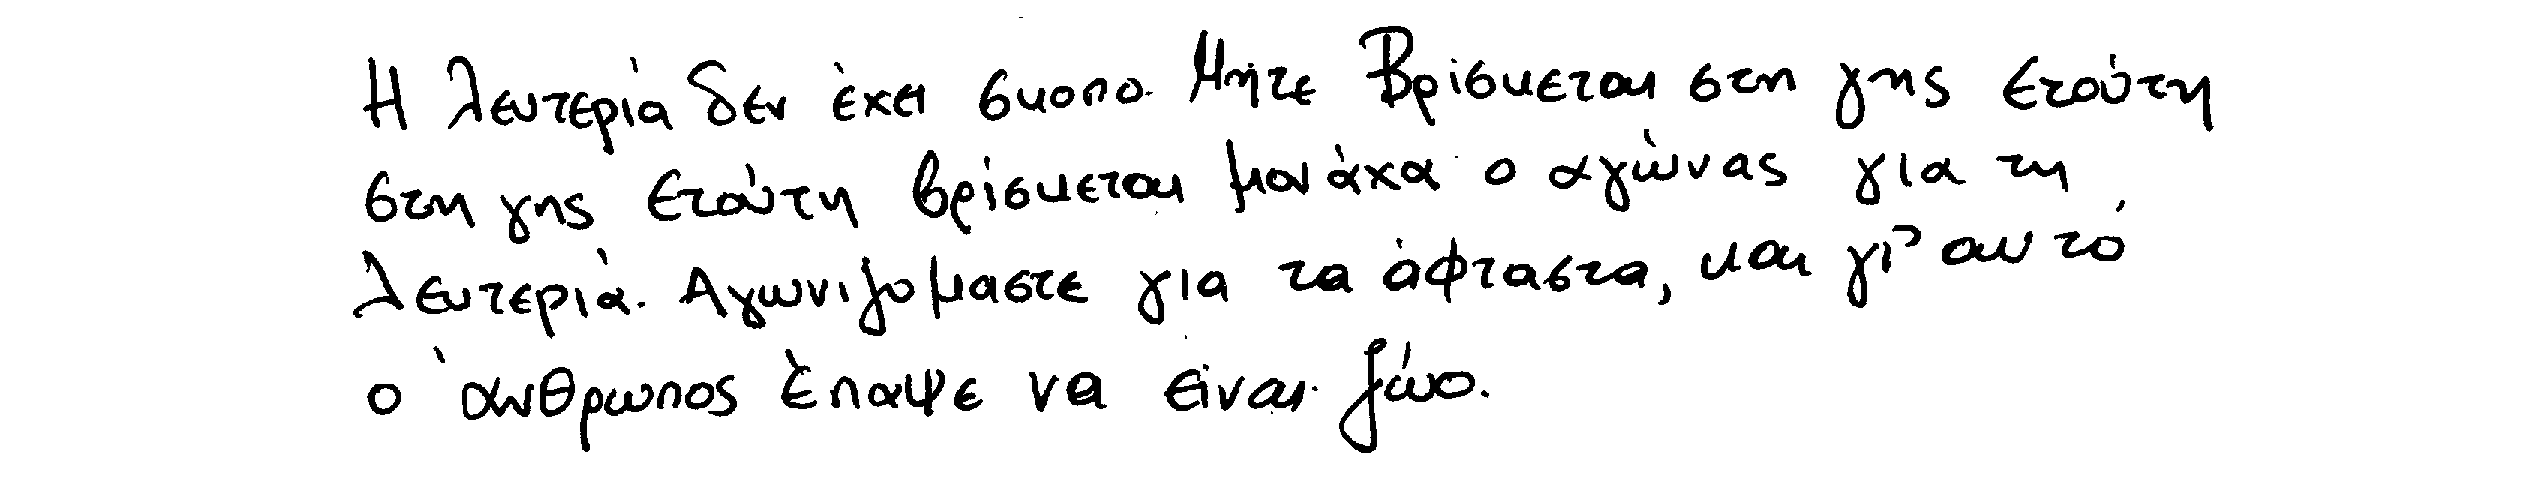 Η λευτεριά δεν έχει σκοπο. Μήτε βρίσκεται στη γης ετούτη
στη γης ετούτη βρίσκεται μονάχα ο αγώνας για τη
λευτεριά. Αγωνιζομαστε για τα άφταστα, και γι' αυτό
ο άνθρωπος έπαψε να είναι ζώο.